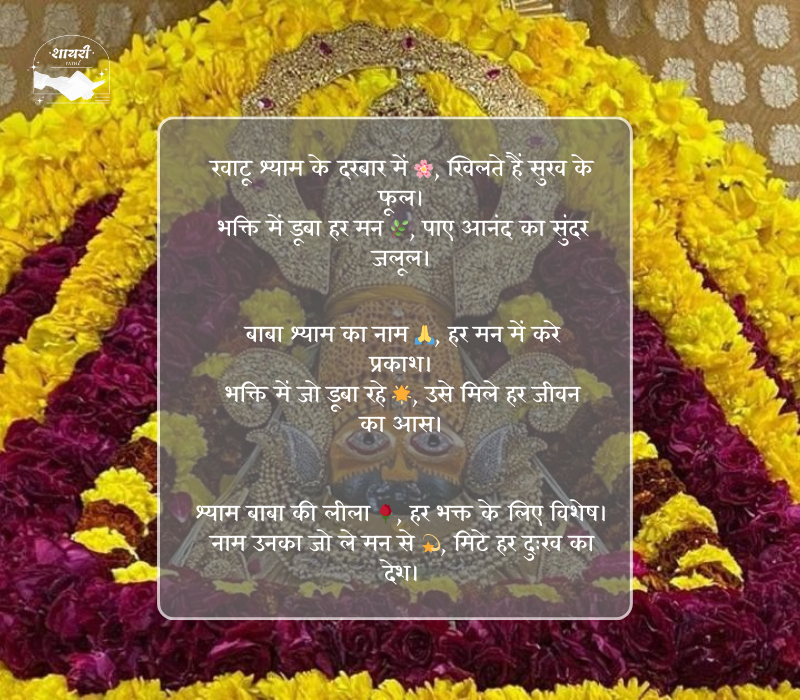 शायरी
खाटू श्याम के दरबार में 🌸, खिलते हैं सुख के
फूल।
भक्ति में डूबा हर मन 🌿, पाए आनंद का सुंदर
जलूल।
बाबा श्याम का नाम 🙏, हर मन में करे
प्रकाश।
भक्ति में जो डूबा रहे 🌟, उसे मिले हर जीवन
का आस।
श्याम बाबा की लीला 🌹, हर भक्त के लिए विशेष।
नाम उनका जो ले मन से 💫, मिटे हर दुःख का
देश।